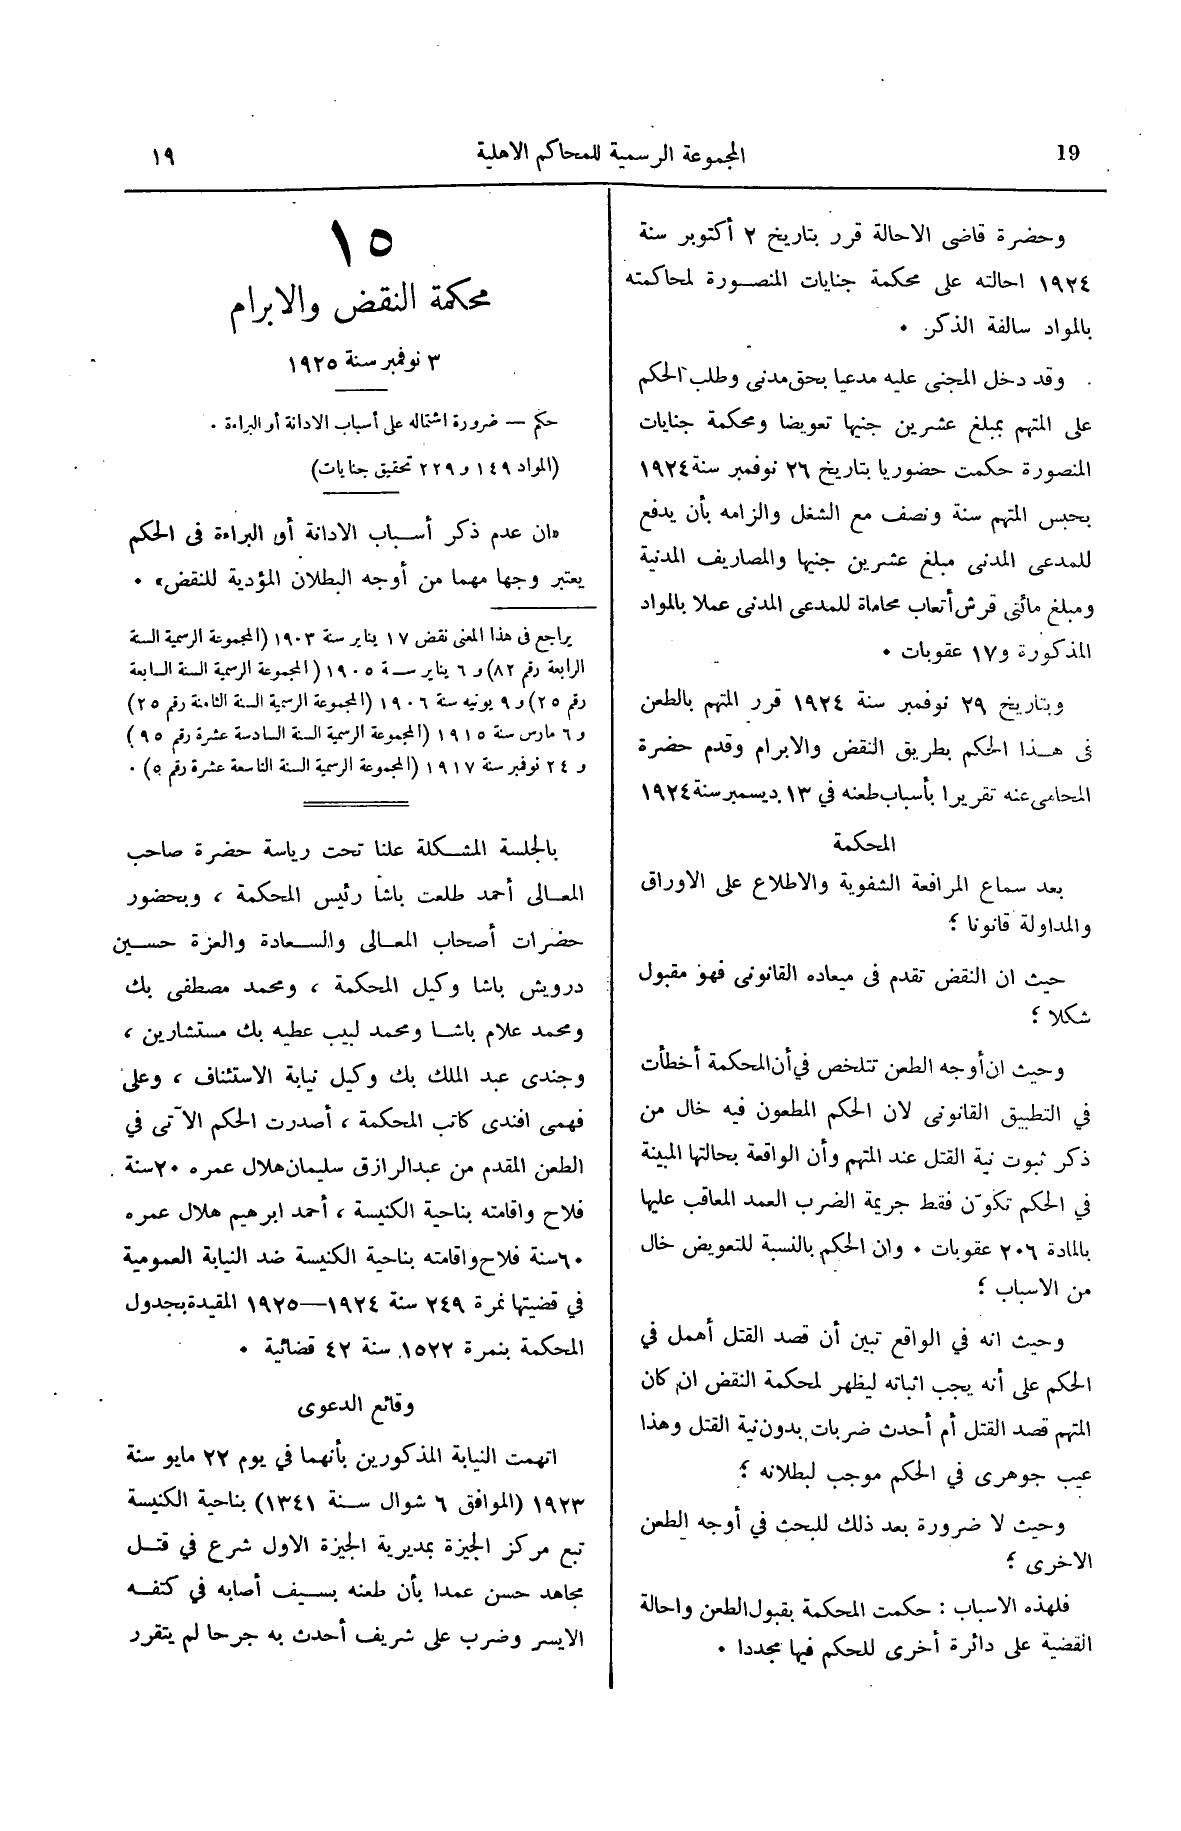 19
المجموعة الرسمية للمحاكم الاهلية
١٩
وحضرة قاضى الاحالة قرر بتاريخ ٢ أكتوبر سنة
١٩٢٤ احالته على محكمة جنايات المنصورة لمحاكمته
بالمواد سالفة الذكر .
وقد دخل المجنى عليه مدعيا بحق مدنى وطلب الحكم
على المتهم بمبلغ عشرين جنيها تعويضا ومحكمة جنايات
المنصورة حكمت حضوريا بتاريخ ٢٦ نوفمبر سنة ١٩٢٤
بحبس المتهم سنة ونصف مع الشغل والزامه بأن يدفع
للمدعى المدنى مبلغ عشرين جنيها والمصاريف المدنية
ومبلغ مائتى قرش أتعاب محاماة للمدعى المدنى عملا بالمواد
المذكورة و١٧ عقوبات .
وبتاريخ ٢٩ نوفمبر سنة ١٩٢٤ قرر المتهم بالطعن
فى هذا الحكم بطريق النقض والابرام وقدم حضرة
المحامى عنه تقريرا بأسباب طعنه في ١٣ ديسمبر سنة ١٩٢٤
المحكمة
بعد سماع المرافعة الشفوية والاطلاع على الاوراق
والمداولة قانونا ؛
حيث ان النقض تقدم فى ميعاده القانونى فهو مقبول
شكلا ؛
وحيث ان أوجه الطعن تتلخص في أن المحكمة أخطأت
في التطبيق القانونى لان الحكم المطعون فيه خال من
ذكر ثبوت نية القتل عند المتهم وأن الواقعة بحالتها المبينة
في الحكم تكوّن فقط جريمة الضرب العمد المعاقب عليها
بالمادة ٢٠٦ عقوبات . وان الحكم بالنسبة للتعويض خال
من الاسباب ؛
وحيث انه في الواقع تبين أن قصد القتل أهمل في
الحكم على أنه يجب اثباته ليظهر لمحكمة النقض ان كان
المتهم قصد القتل أم أحدث ضربات بدون نية القتل وهذا
عيب جوهرى في الحكم موجب لبطلانه ؛
وحيث لا ضرورة بعد ذلك للبحث في أوجه الطعن
الاخرى ؛
فلهذه الاسباب : حكمت المحكمة بقبول الطعن واحالة
القضية على دائرة أخرى للحكم فيها مجددا .
١٥
محكمة النقض والابرام
٣ نوفمبر سنة ١٩٢٥
حكم — ضرورة اشتماله على أسباب الادانة أو البراءة .
(المواد ١٤٩ و ٢٢٩ تحقيق جنايات)
«ان عدم ذكر أسباب الادانة أو البراءة فى الحكم
يعتبر وجها مهما من أوجه البطلان المؤدية للنقض» .
يراجع فى هذا المعنى نقض ١٧ يناير سنة ١٩٠٣ (المجموعة الرسمية السنة
الرابعة رقم ٨٢) و ٦ يناير سنة ١٩٠٥ (المجموعة الرسمية السنة السابعة
رقم ٢٥) و ٩ يونيه سنة ١٩٠٦ (المجموعة الرسمية السنة الثامنة رقم ٢٥)
و ٦ مارس سنة ١٩١٥ (المجموعة الرسمية السنة السادسة عشرة رقم ٩٥)
و ٢٤ نوفمبر سنة ١٩١٧ (المجموعة الرسمية السنة التاسعة عشرة رقم ٥) .
بالجلسة المشكلة علنا تحت رياسة حضرة صاحب
المعالى أحمد طلعت باشا رئيس المحكمة ، وبحضور
حضرات أصحاب المعالى والسعادة والعزة حسين
درويش باشا وكيل المحكمة ، ومحمد مصطفى بك
ومحمد علام باشا ومحمد لبيب عطيه بك مستشارين ،
وجندى عبد الملك بك وكيل نيابة الاستئناف ، وعلى
فهمى افندى كاتب المحكمة ، أصدرت الحكم الآتى في
الطعن المقدم من عبدالرازق سليمان هلال عمره ٢٠ سنة
فلاح واقامته بناحية الكنيسة ، أحمد ابرهيم هلال عمره
٦٠ سنة فلاح واقامته بناحية الكنيسة ضد النيابة العمومية
في قضيتها نمرة ٢٤٩ سنة ١٩٢٤—١٩٢٥ المقيدة بجدول
المحكمة بنمرة ١٥٢٢ سنة ٤٢ قضائية .
وقائع الدعوى
اتهمت النيابة المذكورين بأنهما في يوم ٢٢ مايو سنة
١٩٢٣ (الموافق ٦ شوال سنة ١٣٤١) بناحية الكنيسة
تبع مركز الجيزة بمديرية الجيزة الاول شرع في قتل
مجاهد حسن عمدا بأن طعنه بسيف أصابه في كتفه
الايسر وضرب على شريف أحدث به جرحا لم يتقرر